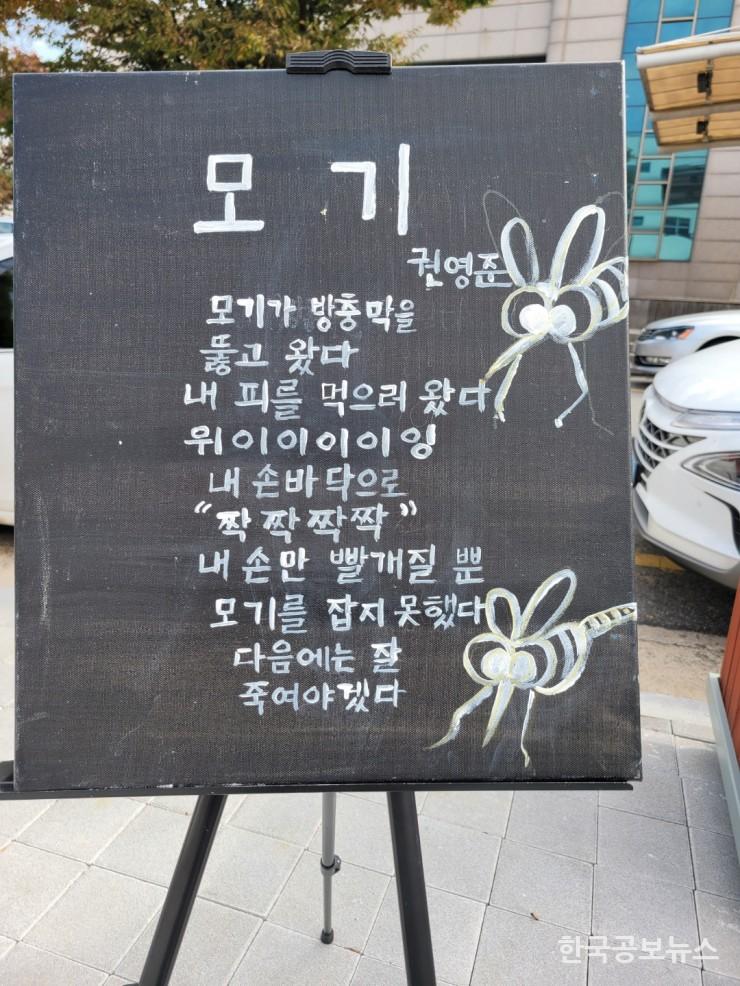 모기
권영준
모기가 방충막을
뚫고 왔다
내 피를 먹으러 왔다
위이이이이잉
내 손바닥으로
“짝짝짝짝”
내 손만 빨개질 뿐
모기를 잡지 못했다
다음에는 잘
죽여야겠다
한국공보뉴스